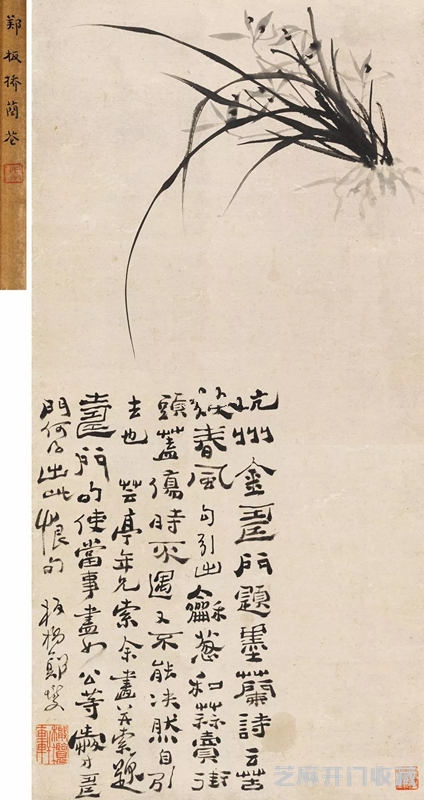 鄭板橋蘭花
杭州金壽門題墨蘭詩云苦
被春風勾引出龢葱和蒜賣街
頭蓋傷時不遇又不能决然自引
去也 芸亭年兄索余畫并索題
壽門句使當事盡如公等愛才壽
門何得出此恨句 板橋鄭燮
芝麻开门收藏